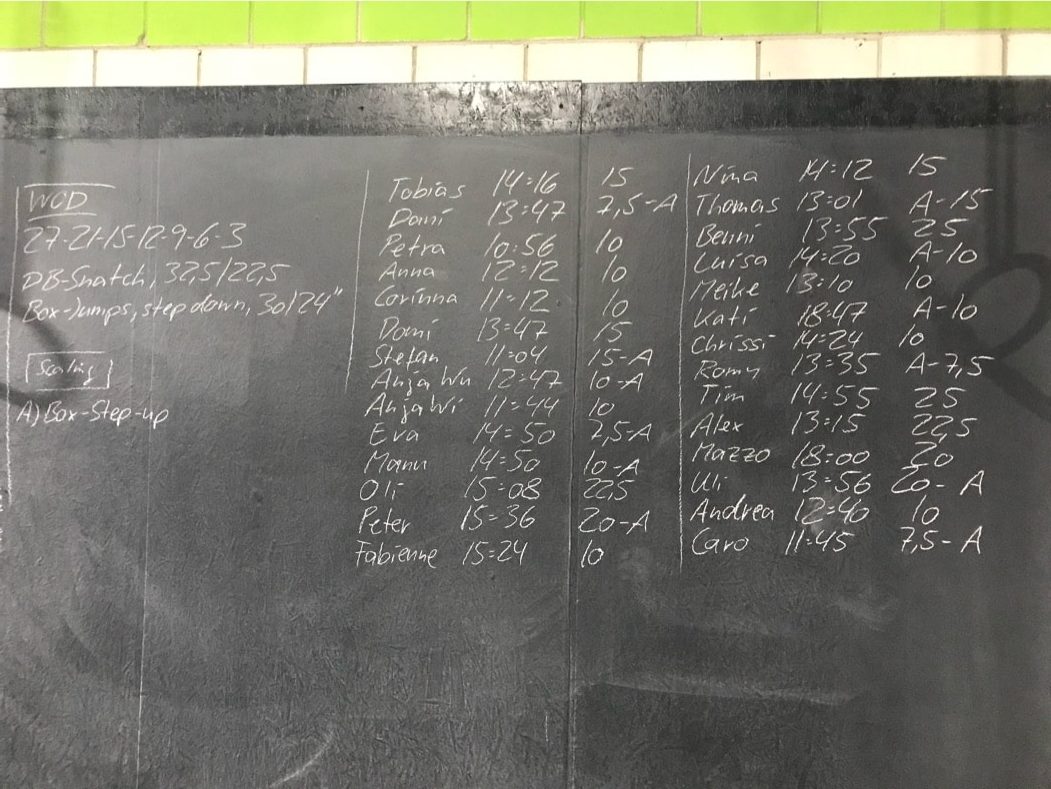 WOD
27-21-15-12-9-6-3
DB-Snatch, 32,5/22,5
Box-Jumps, step down, 30/24"
Scaling
A) Box-Step-up
Tobias 14:16 15
Dani 13:47 7,5-A
Petra 10:56 10
Anna 12:12 10
Corinna 11:12 10
Domi 13:47 15
Stefan 11:04 15-A
Anja Wu 12:47 10-A
Anja Wi 11:44 10
Eva 14:50 7,5-A
Manu 14:50 10-A
Oli 15:08 22,5
Peter 15:36 20-A
Fabienne 15:24 10
Nina 14:12 15
Thomas 13:01 A-15
Benni 13:55 25
Luisa 14:20 A-10
Meike 13:10 10
Kati 18:47 A-10
Chrissi 14:24 10
Romy 13:35 A-7,5
Tim 14:55 25
Alex 13:15 22,5
Mazzo 18:00 20
Uli 13:56 20-A
Andrea 12:40 10
Caro 11:45 7,5-A